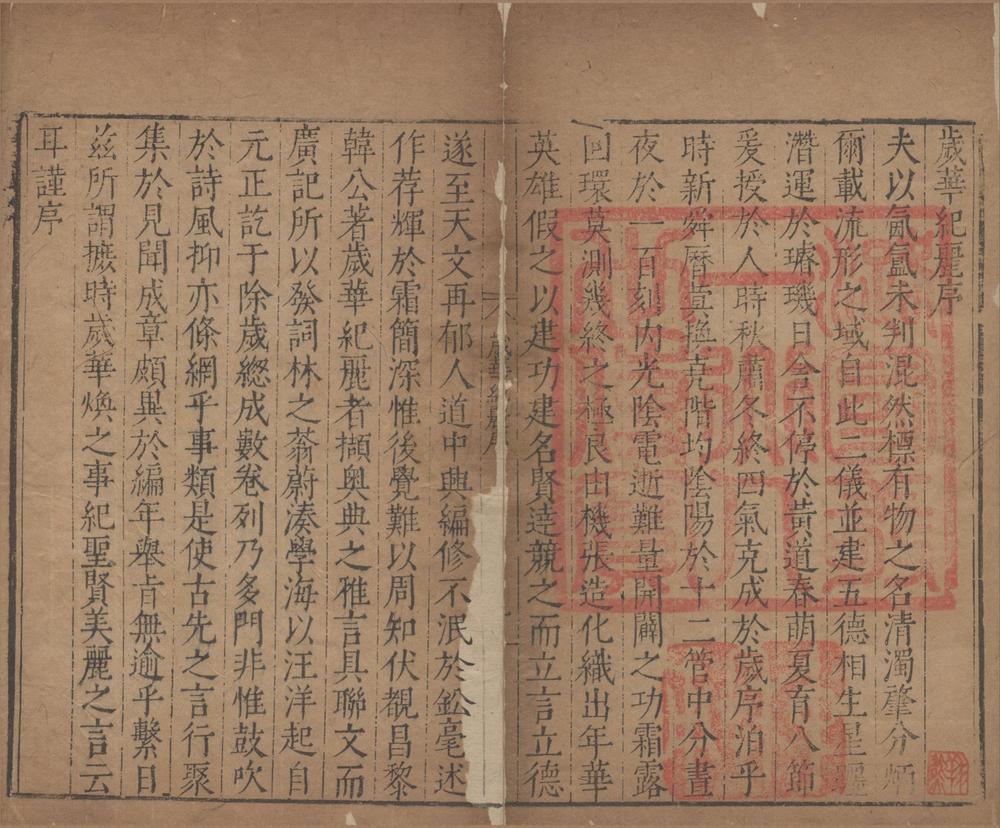 歲華紀麗序
夫以氤氳未判混然標有物之名清濁肇分蛃
爾載流形之域自此二儀並建五德相生星躔
潛運於璿璣日含不停於黄道春萌夏育八節
爰授於人時秋肅冬終四氣克成於歲序泊乎
時新舜曆蓂換堯階均陰陽於十二管中分晝
夜於一百刻内光陰電逝難量開闢之功霜露
回環莫測幾終之極良由機張造化織出年華
英雄假之以建功建名賢逹競之而立言立德
歲華紀麗序
遂至天文再郁人道中興編修不泯於鈆毫述
作荐輝於霜簡深惟後覺難以周知伏覩昌黎
韓公著歲華紀麗者擷奥典之雅言具聯文而
廣記所以發詞林之蓊蔚湊學海以汪洋起自
元正訖于除歲緫成數卷列乃多門非惟鼓吹
於詩風抑亦條綱乎事類是使古先之言行聚
集於見聞成章頗異於編年舉㫖無逾乎繫日
兹所謂摭時歲華煥之事紀聖賢美麗之言云
耳謹序